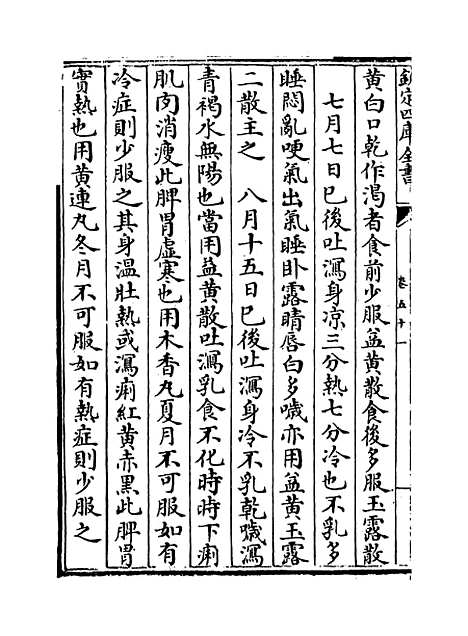 欽定四庫全書
卷五十一
黄白口乾作渇者食前少服益黄散食後多服玉露散
七月七日巳後吐瀉身凉三分熱七分冷也不乳多
睡悶亂哽氣出氣睡卧露睛唇白多噦亦用益黄玉露
二散主之　八月十五日巳後吐瀉身冷不乳乾噦瀉
青褐水無陽也當用益黄散吐瀉乳食不化時時下痢
肌肉消瘦此脾胃虚寒也用木香丸夏月不可服如有
冷症則少服之其身温壯熱或瀉痢紅黄赤黒此脾胃
實熱也用黄連丸冬月不可服如有熱症則少服之